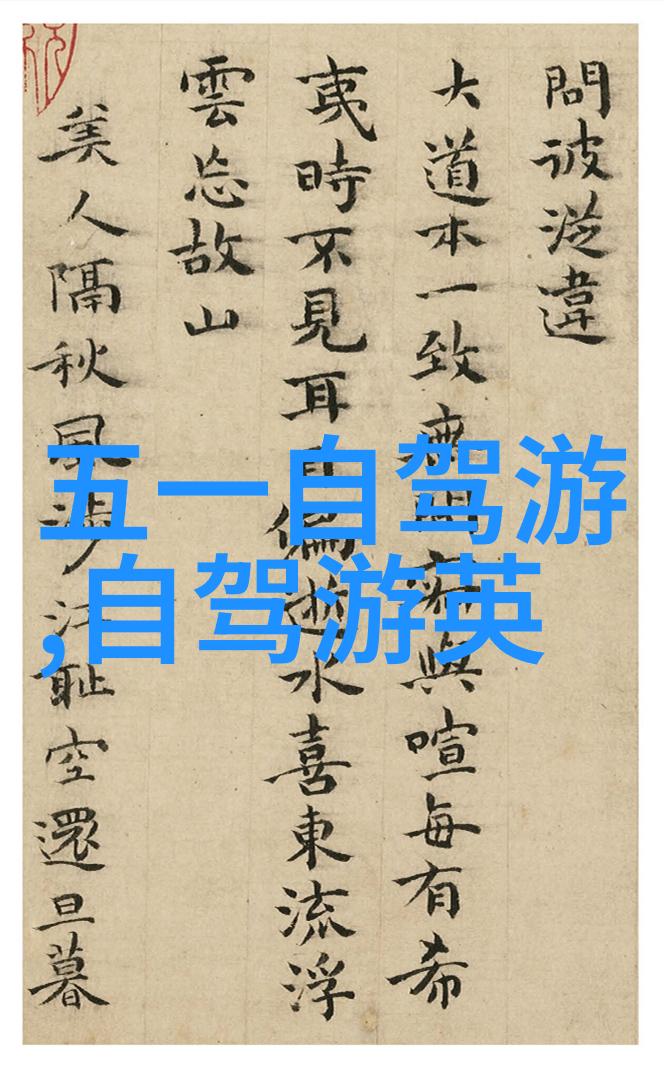 問彼從違
大道本一致 與喧每有希
夷時不見耳 逝水喜東流浮
雲忘故山
美人隔秋風 空還旦暮
五一自驾游
,自驾游英